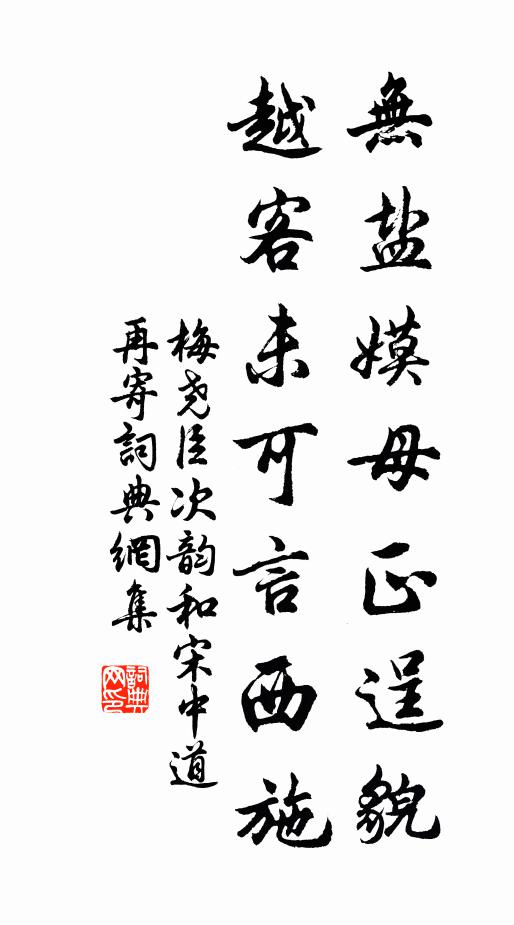 無盐嫫母正逞貌
越客未可言西施
梅尧臣次韵和宋中道
再寄詞典網集
詞典
网印